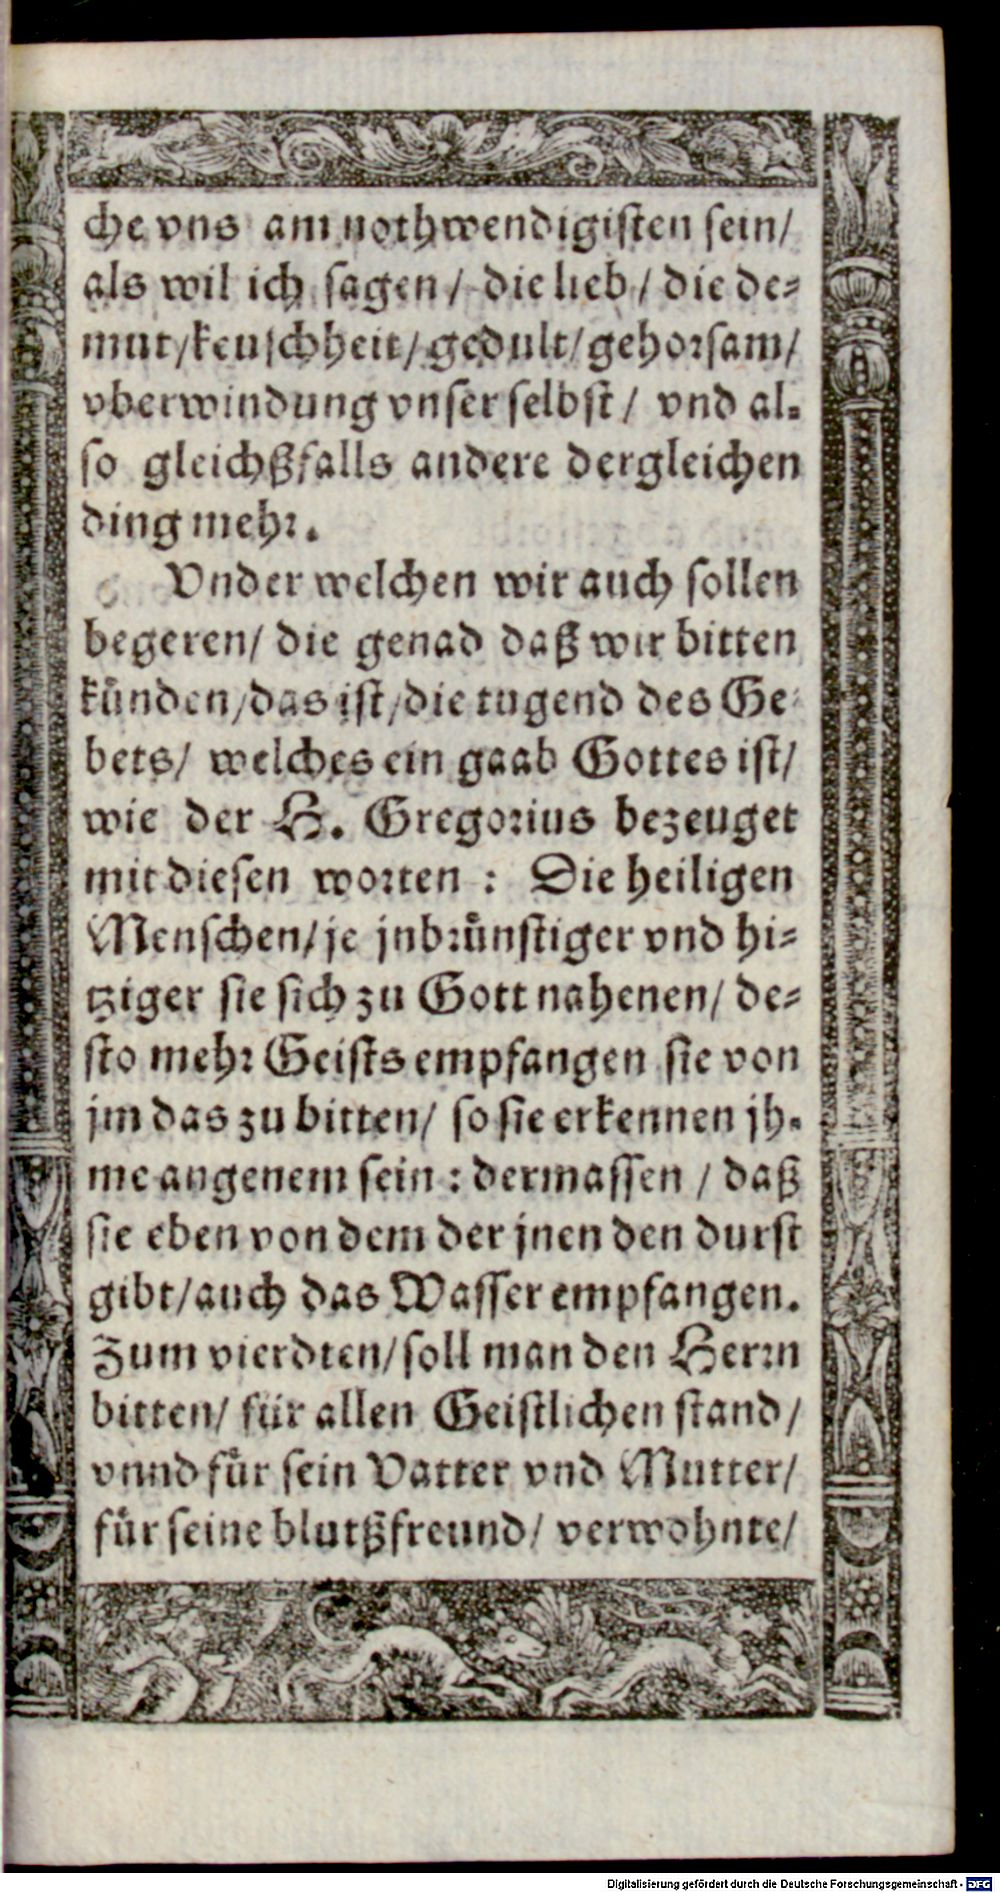 che vns am nothwendigisten sein/
als wil ich sagen/ die lieb/ die de-
mut/keuschheit/gedult/gehorsam/
vberwindung vnser selbst/ vnd al-
so gleichßfalls andere dergleichen
ding mehr.
Vnder welchen wir auch sollen
begeren/ die genad daß wir bitten
künden/das ist/die tugend des Ge-
bets/ welches ein gaab Gottes ist/
wie der H. Gregorius bezeuget
mit diesen worten : Die heiligen
Menschen/je jnbrünstiger vnd hi-
tziger sie sich zu Gott nahenen/ de-
sto mehr Geists empfangen sie von
jm das zu bitten/ so sie erkennen jh-
me angenem sein : dermassen / daß
sie eben von dem der jnen den durst
gibt/auch das Wasser empfangen.
Zum vierdten/soll man den Herrn
bitten/ für allen Geistlichen stand/
vnnd für sein Vatter vnd Mutter/
für seine blutßfreund/ verwohnte/
Digitalisierung gefördert durch die Deutsche Forschungsgemeinschaft - DFG